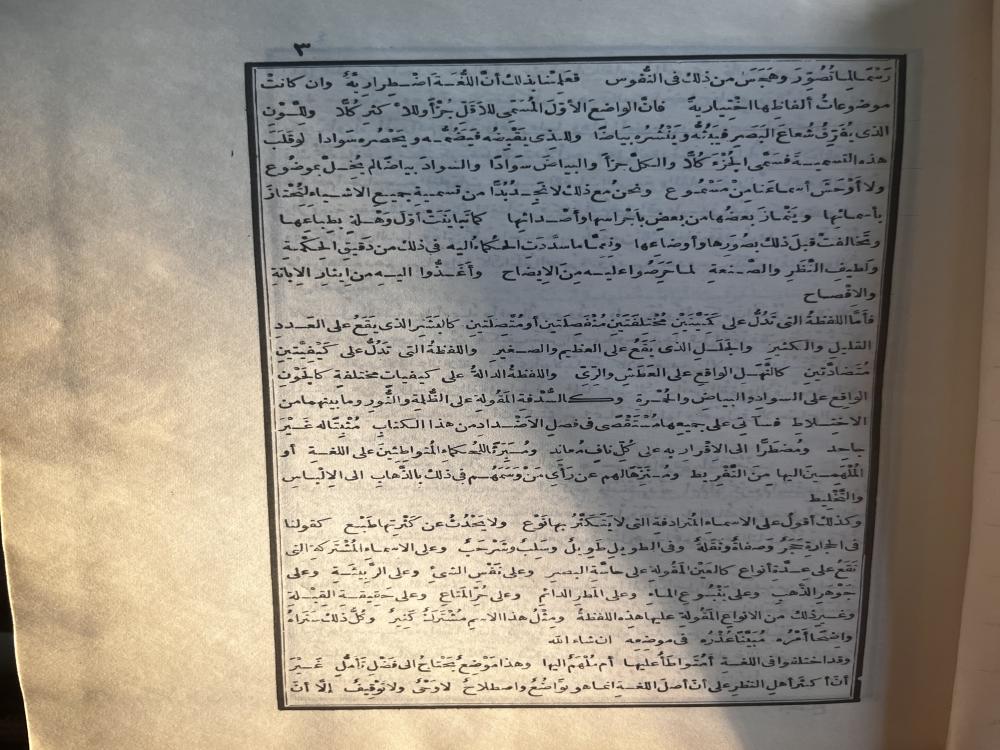 ٣
رَسْمًا لما تُصُوِّرَ وهَجَسَ من ذلك فى النُّفوس فعَلِمْنا بذلك أنَّ اللُّغَـة اضْـطِرارِيةٌ وان كانتْ
موضوعاتُ ألفاظِها اخْتِياريةً فانّ الواضِعَ الاَّوّلَ المُسَمِّىَ للاَقَلِّ جُزْأً وللاْ كثَرِ كُلاًّ ولِلَّـوْن
الذى يُفَرِّقُ شُعاعَ البَصَرِ فيَبُثُّه ويَنْشُره بَياضًا وللذى يَقْبِضُه فيَضُمُّـه ويَحْصُره سَوادا لو قَلَبَ
هذه التسميـةَ فسَمَّى الجُزْءَ كُلاًّ والكُلَّ جزأً والبياضَ سَوادًا والسوادَ بياضًا لم يُخِــلَّ بموضُوع
ولا أَوْحَشَ أسماعَنا مِنْ مَسْمُـوع ونحنُ مع ذلك لا نَجِـدُ بُدًّا من تسميـةِ جميـعِ الاشـياءِ لتَحْتازَ
بأسمائِها ويَنْمازَ بعضُها من بعض بأجْراسِها وأصْـدائِها كما تَبايَنَتْ أوّلَ وَهْـلةٍ بطِباعها
وتَخالفتْ قبلَ ذلك بصُوَرِها وأوضاعها ونِعِمَّا ما سَدَّدَتِ الحُكماءُ اليه فى ذلك من دَقيق الحِكْمةِ
ولَطيفِ النَّظَرِ والصَّـنعة لما حَرَصُوا عليـه مِنَ الايضاح وأَغَـذُّوا اليـه من إيثارِ الابانةِ
والافْصـاح
فأمَّا اللفظةُ التى تَدُلُّ على كَمِّيَّتَيْنِ مُخْتلِفَتَيْنِ مُنْفصِلَتين أو مُتَّصِلَتين كالبَشَرِ الذى يَقَعُ على العَـدد
القليلِ والكثيرِ والجَلَلِ الذى يَقَعُ على العظيمِ والصــغيرِ واللفظةُ التى تَدُلُّ على كَيْفِيَّتينِ
مُتَضادَّتينِ كالنَّهَـلِ الواقعِ على العَطَشِ والرِّىِّ واللفظةُ الدالةُ على كيفياتٍ مختلفةٍ كالجَوْنِ
الواقعِ على السوادِ والبياضِ والحُمْـرة وكـالسُّدفةِ المَقُولةِ على الظُّلْمةِ والنُّورِ وما بينهما من
الاختِــلاط فسـآتى على جميعِها مُسْتَقْصًى فى فصل الاَضْـداد من هذا الكتابِ مُثْبِتًا له غَيْرَ
جاحدٍ ومُضْطَرًّا الى الاقْرار به على كُلِّ نافٍ مُعانِدٍ ومُبَرِّئًا للحكماء المُتواطِئِينَ على اللغــة أو
المُلْهَمِــينَ اليها مِنَ التَّفْرِيطِ ومُــنَزِّهًا لهم عن رَأْىِ مَنْ وَسَمَهُــم فى ذلك بالذَّهاب الى الالْباسِ
والتَّخْلِيط
وكذلك أقولُ على الاسماءِ المُترادفةِ التى لا يَتَكَثَّرُ بها نَوْع ولا يَحْدُثُ عن كَثْرتِها طَبْـع كقولنا
فى الحجارةِ حَجَرٌ وصَفاةٌ ونَقَلةٌ وفى الطويلِ طَوِيلٌ وسَلِبٌ وشَرْحَبٌ وعلى الاسماءِ المُشْتَرَكةِ التى
تَقَعُ على عِــدّةِ أنواع كالعَيْنِ المَقُولة على حاسَّةِ البصرِ وعلى نَفْسِ الشئِ وعلى الرَّبِيئــةِ وعلى
جَوْهرِ الذهبِ وعلى يَنْبُــوعِ الماءِ وعلى المَطَرِ الدائِمِ وعلى حُرِّ المَتاعِ وعلى حَقِيقــةِ القِبْــلةِ
وغــيرِ ذلك من الانواع المَقُولةِ عليها هذه اللفظةُ ومثْلُ هذا الاسمِ مُشْتَركٌ كَثِيرٌ وكُلُّ ذلك سَتَراهُ
واضِحًا أَمْرُه مُبَيَّنًا عُذْرُه فى موضِعِه ان شاء الله
وقد اختلفوا فى اللغــة أمُتَواطَأٌ عليهــا أم مُلْهَمٌ اليها وهذا مَوْضِعٌ يَحْتاجُ الى فَضْلِ تَأَمُّلٍ غَــيْرَ
أنّ أكثرَ أهلِ النظرِ على أنّ أصلَ اللغــةِ انما هو تَواضُعٌ واصطلاحٌ لا وَحْىٌ ولا تَوْقِيفٌ إلّا أنّ